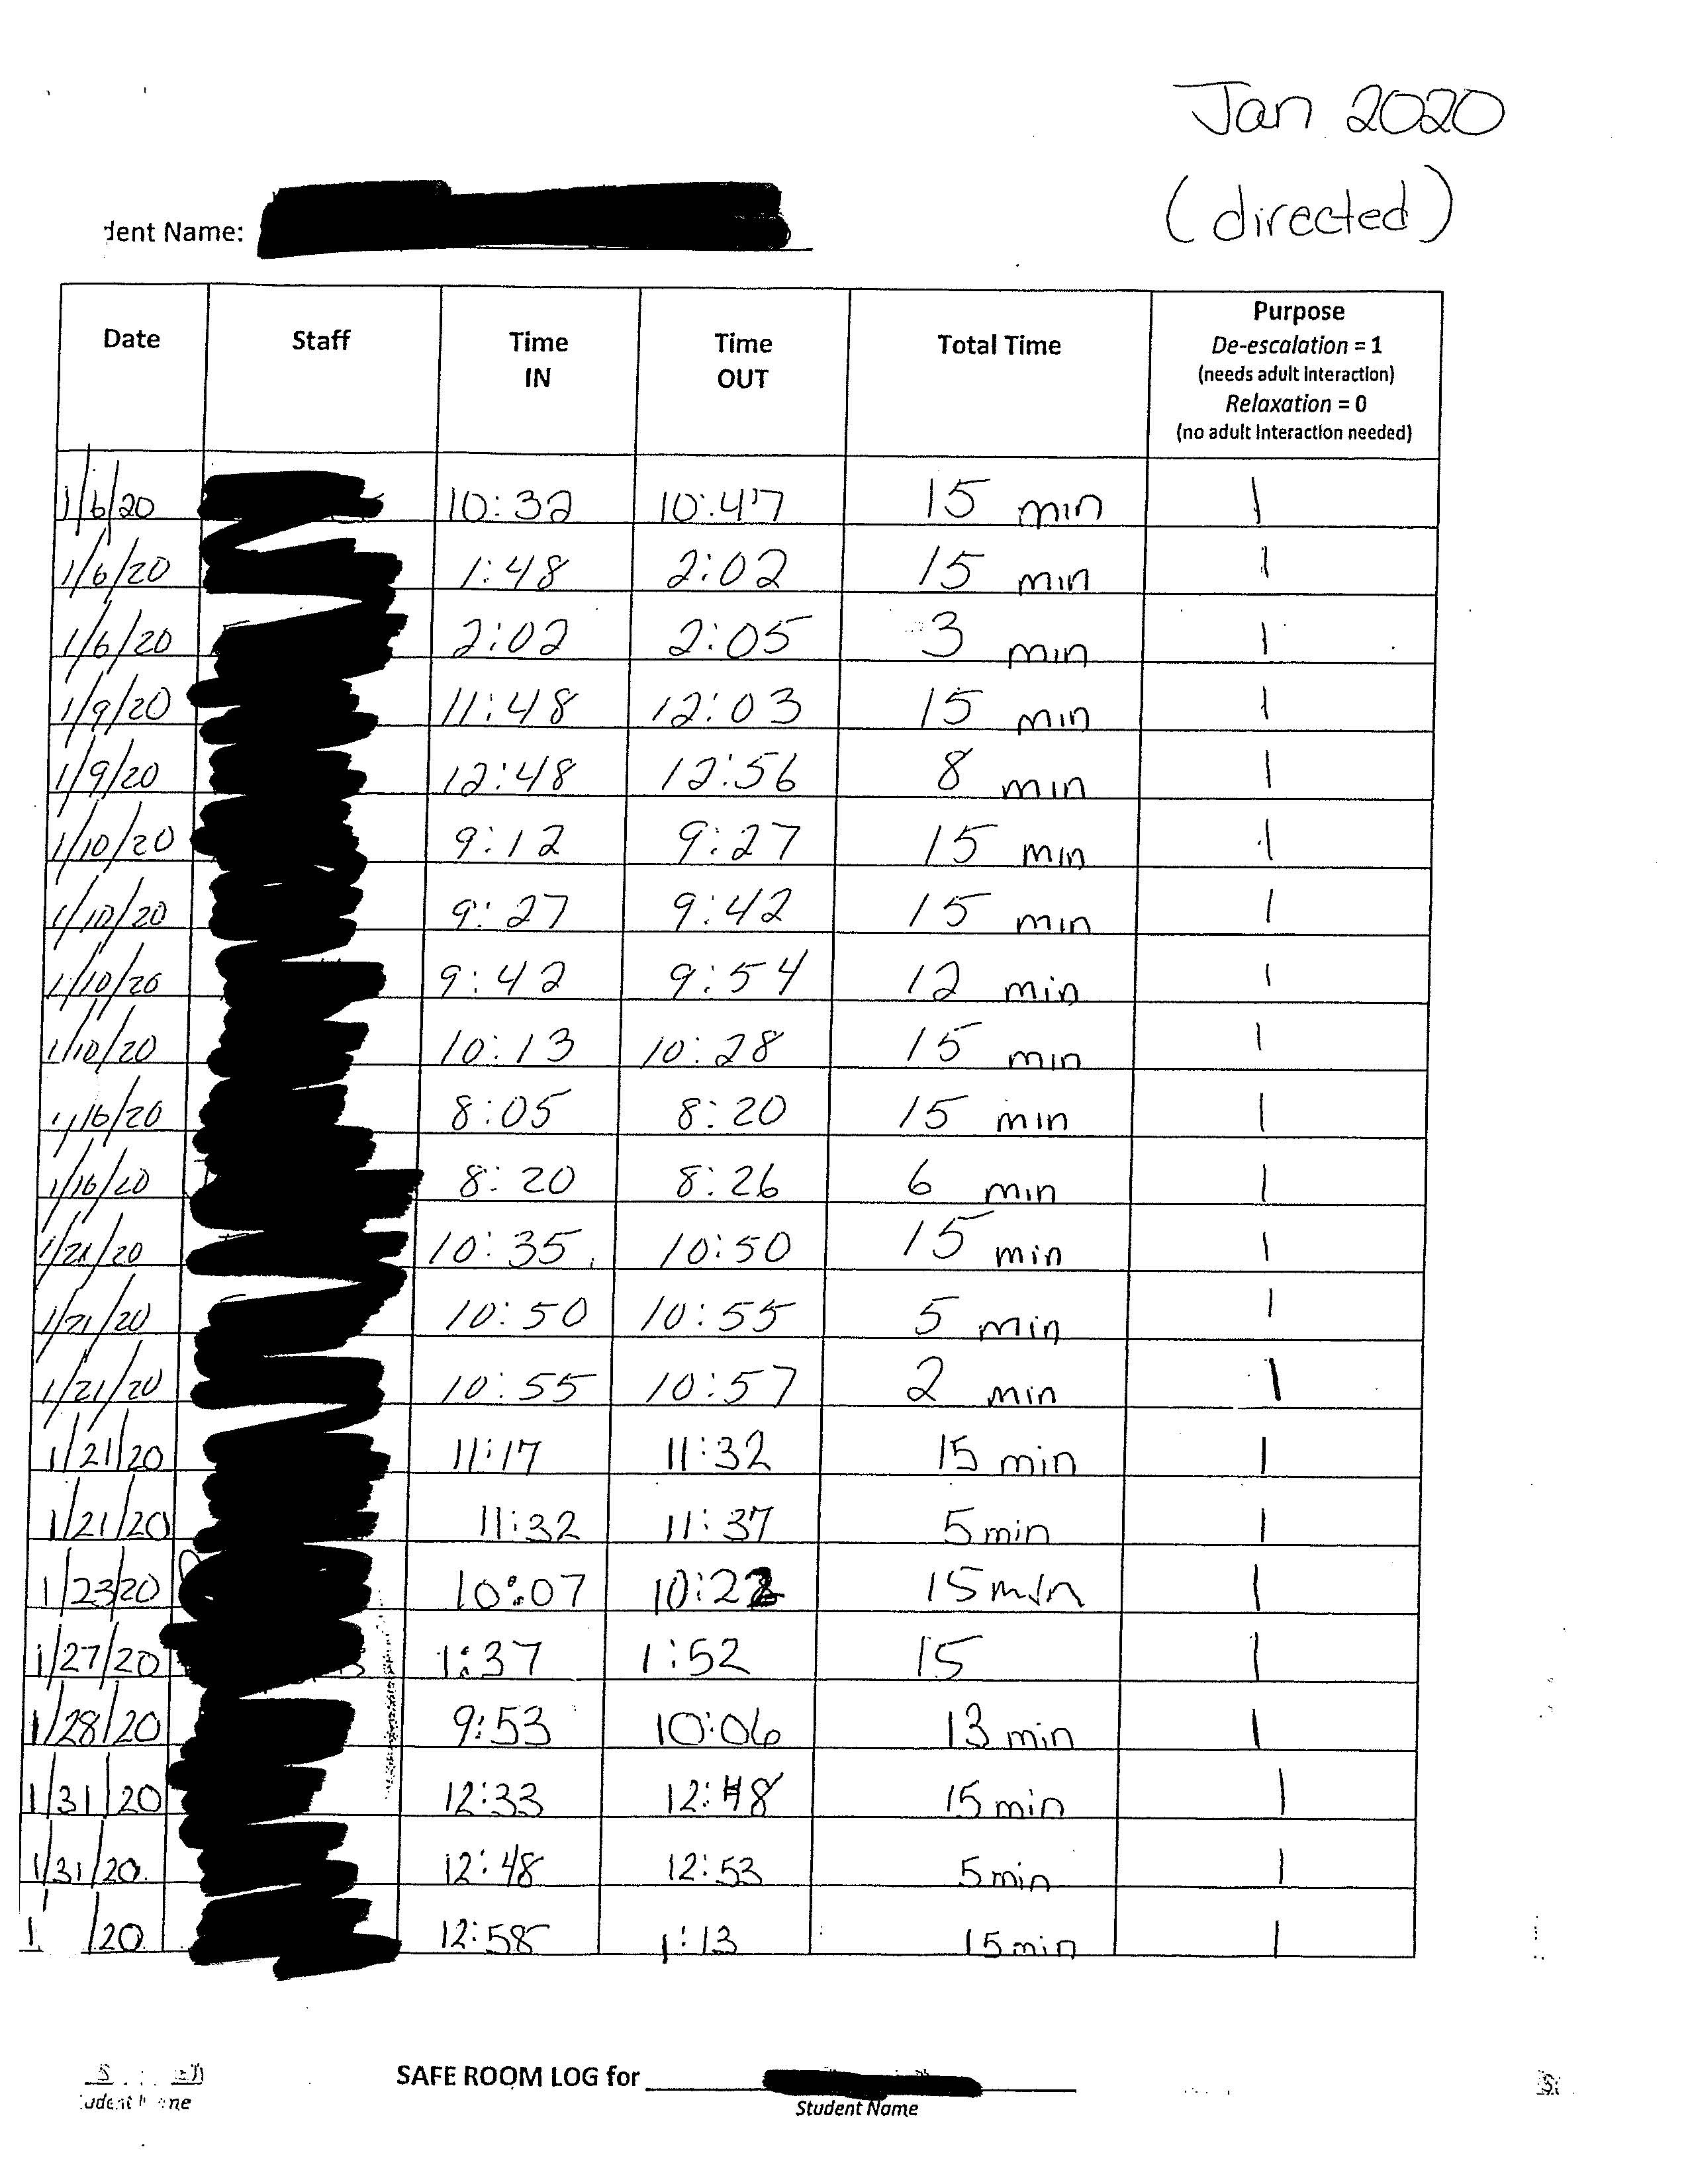 Jan 2020
(directed)
dent Name:
Date Staff Time IN Time OUT Total Time Purpose
De-escalation = 1
(needs adult interaction)
Relaxation = 0
(no adult interaction needed)
1/6/20 10:32 10:47 15 min 1
1/6/20 1:48 2:02 15 min 1
1/6/20 2:02 2:05 3 min 1
1/9/20 11:48 12:03 15 min 1
1/9/20 12:48 12:56 8 min 1
1/10/20 9:12 9:27 15 min 1
1/10/20 9:27 9:42 15 min 1
1/10/20 9:42 9:54 12 min 1
1/10/20 10:13 10:28 15 min 1
1/16/20 8:05 8:20 15 min 1
1/16/20 8:20 8:26 6 min 1
1/21/20 10:35 10:50 15 min 1
1/21/20 10:50 10:55 5 min 1
1/21/20 10:55 10:57 2 min 1
1/21/20 11:17 11:32 15 min 1
1/21/20 11:32 11:37 5 min 1
1/23/20 10:07 10:22 15 min 1
1/27/20 1:37 1:52 15 1
1/28/20 9:53 10:06 13 min 1
1/31/20 12:33 12:48 15 min 1
1/31/20 12:48 12:53 5 min 1
1/ /20 12:58 1:13 15 min 1
SAFE ROOM LOG for
Student Name